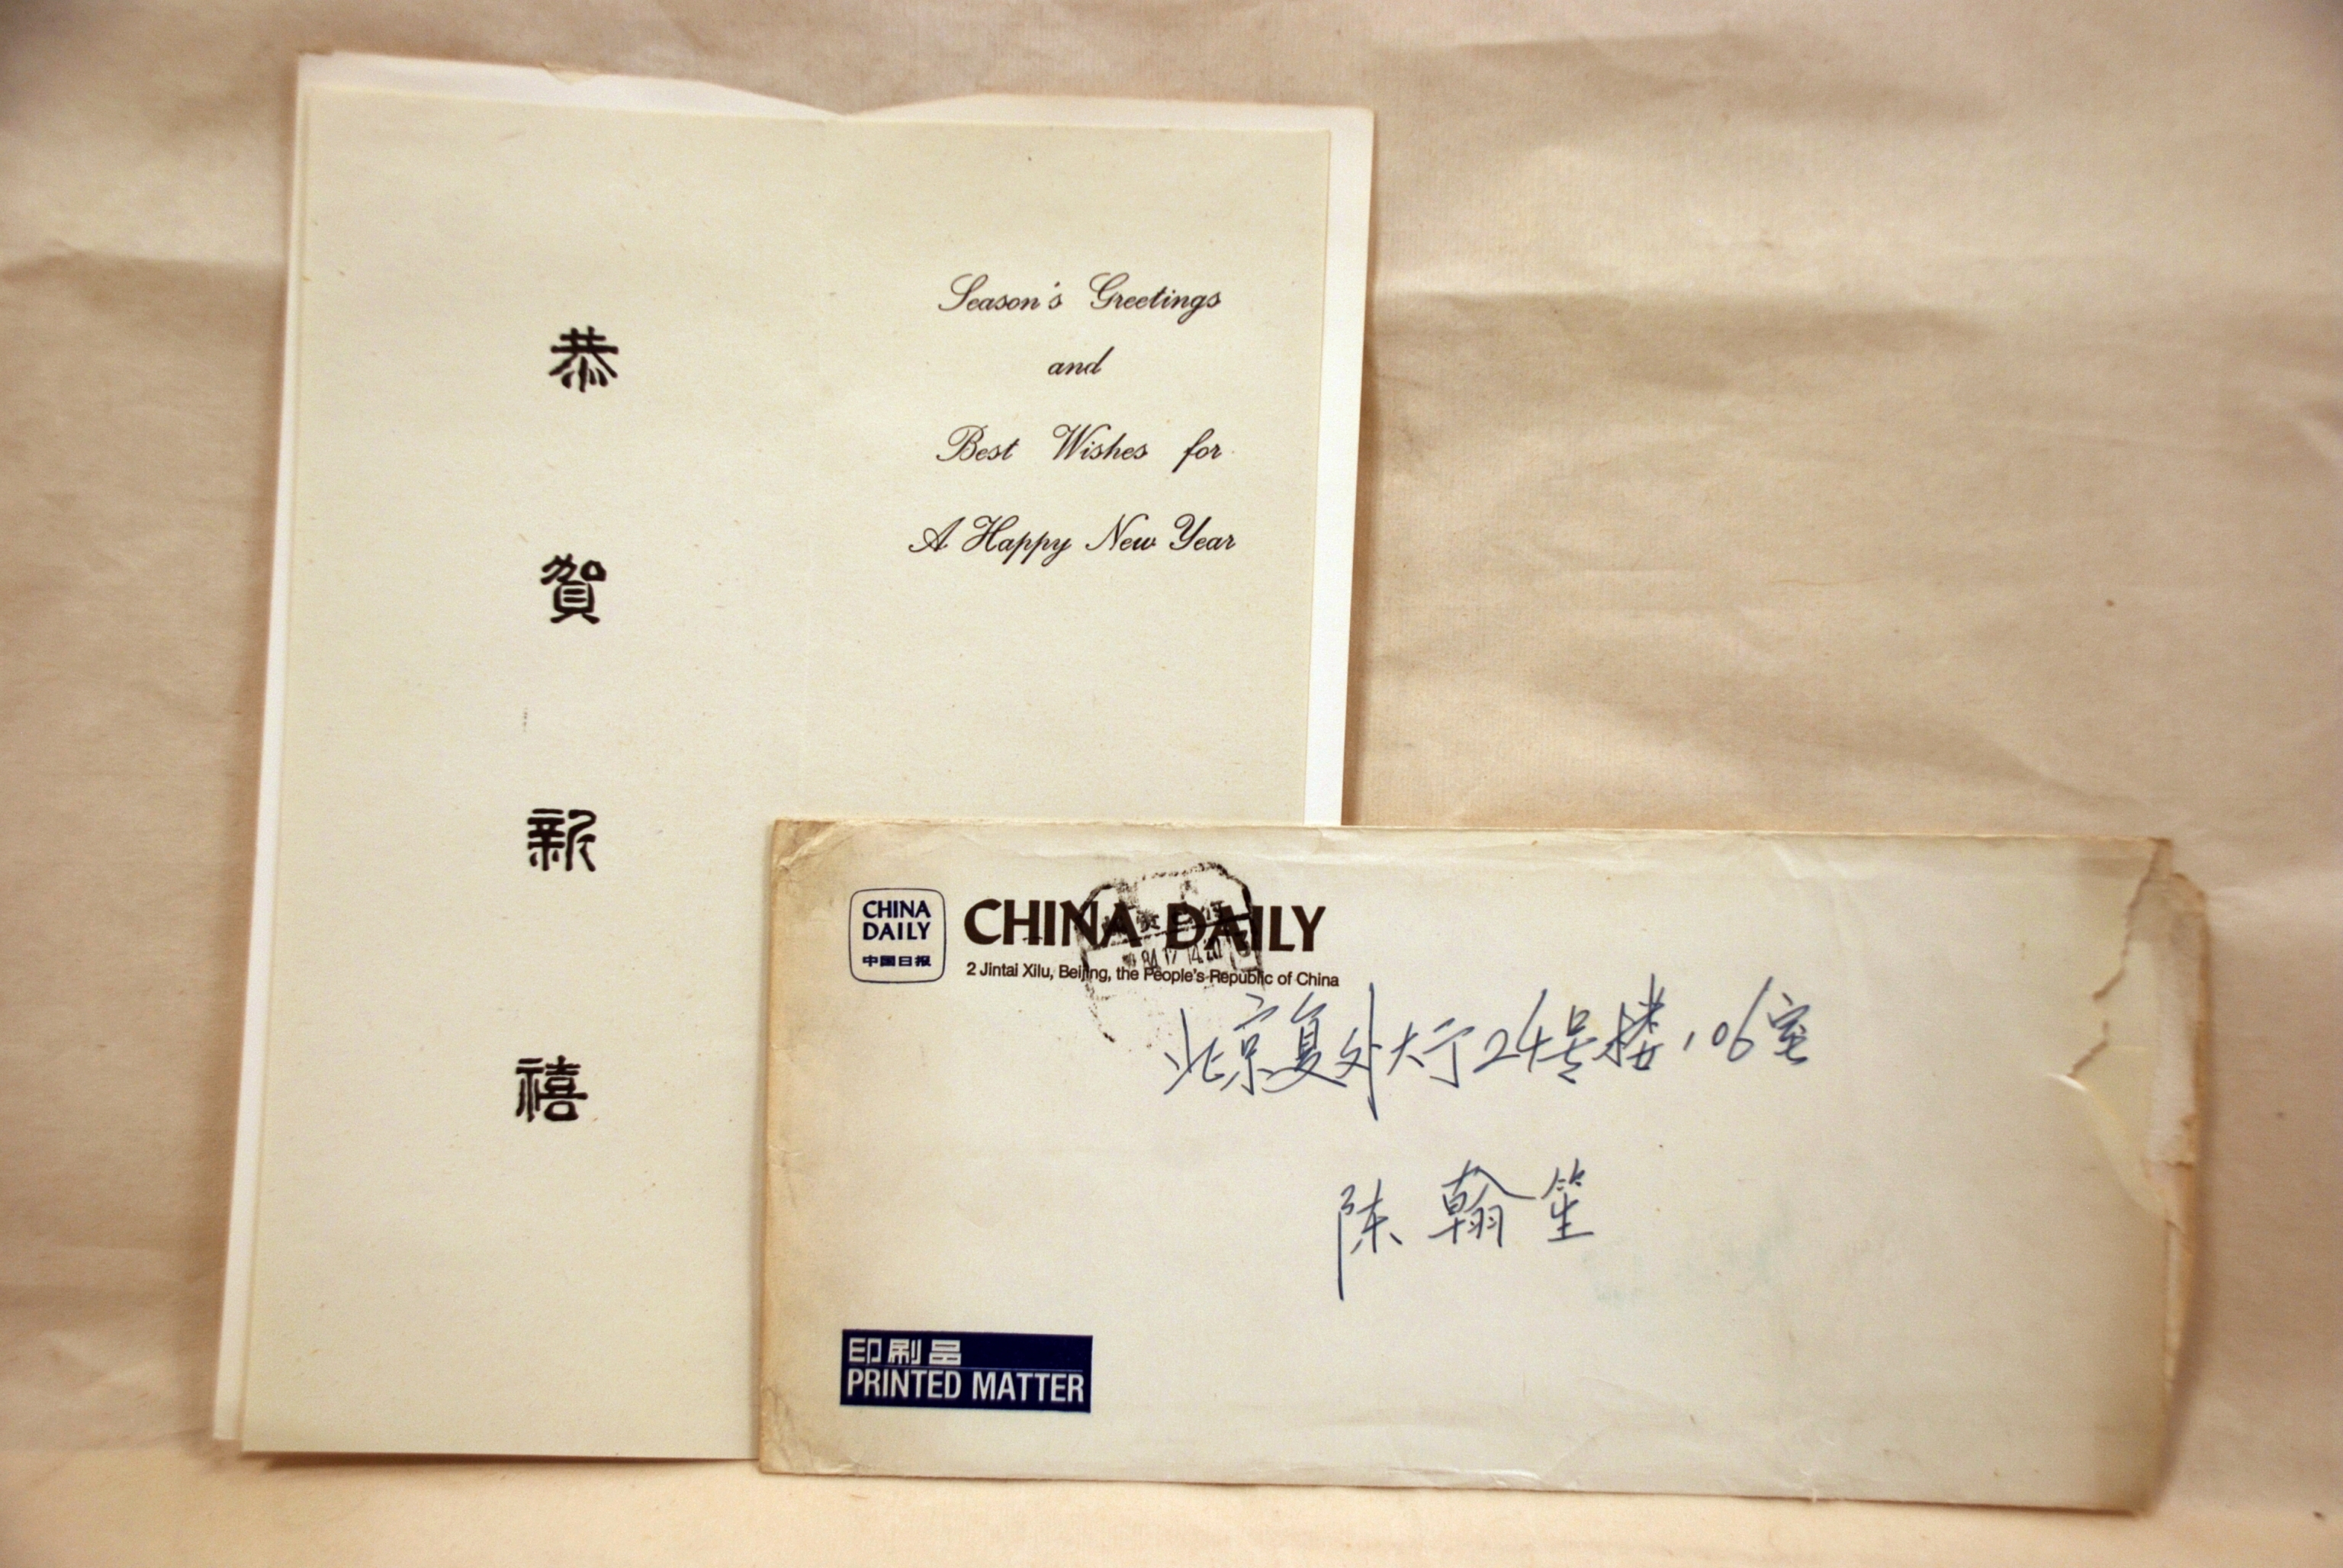 恭
賀
新
禧
Season's Greetings
and
Best Wishes for
A Happy New Year
CHINA
DAILY
中国日报
CHINA DAILY
2 Jintai Xilu, Beijing, the People's Republic of China
北京复外大厅24号楼106室
陈翰笙
印刷品
PRINTED MATTER